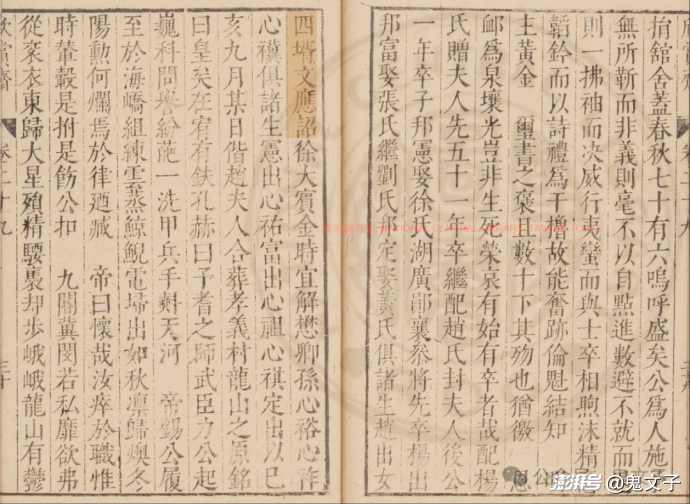 捐舘舍蓋春秋七十有六嗚呼盛矣公為人施予
無所靳而非義則毫不以自點進數避不就而
則一拂袖而决威行夷蠻而與士卒相煦沫精
韜鈐而以詩禮為干櫓故能奮跡倫魁結知
主黃金 璽書之褒且數十下其殁也猶徼
卹為泉壤光豈非生死榮哀有始有卒者哉配楊
氏贈夫人先五十一年卒繼配趙氏封夫人後公
一年卒子邦憲娶徐氏湖廣鄖襄叅將先卒楊出
邦富娶張氏繼劉氏邦定娶黃氏俱諸生趙出女
四壻文應詔徐大賓金時宜解懋卿孫心裕心祚
心禖俱諸生憲出心祐富出心祖心祺定出以巳
亥九月某日偕趙夫人合葬孝義村龍山之原銘
曰皇矣在宥有䤋孔赫曰予耆之師武臣力公起
巍科問譽紛葩一洗甲兵手㪺天河 帝錫公履
至於海嶠組練雲蒸鯨鯢電埽出如秋凛歸燠冬
陽勲何爛焉於律廼臧 帝曰懷哉汝瘁於職惟
時葷轂是拊是飭公扣 九閽冀閔若私靡欲弗
從衮衣東歸大星殞精騕褭却步峨峨龍山有鬱
欣賞齋
卷二十九
三十
澎湃号@鬼文子
公众号